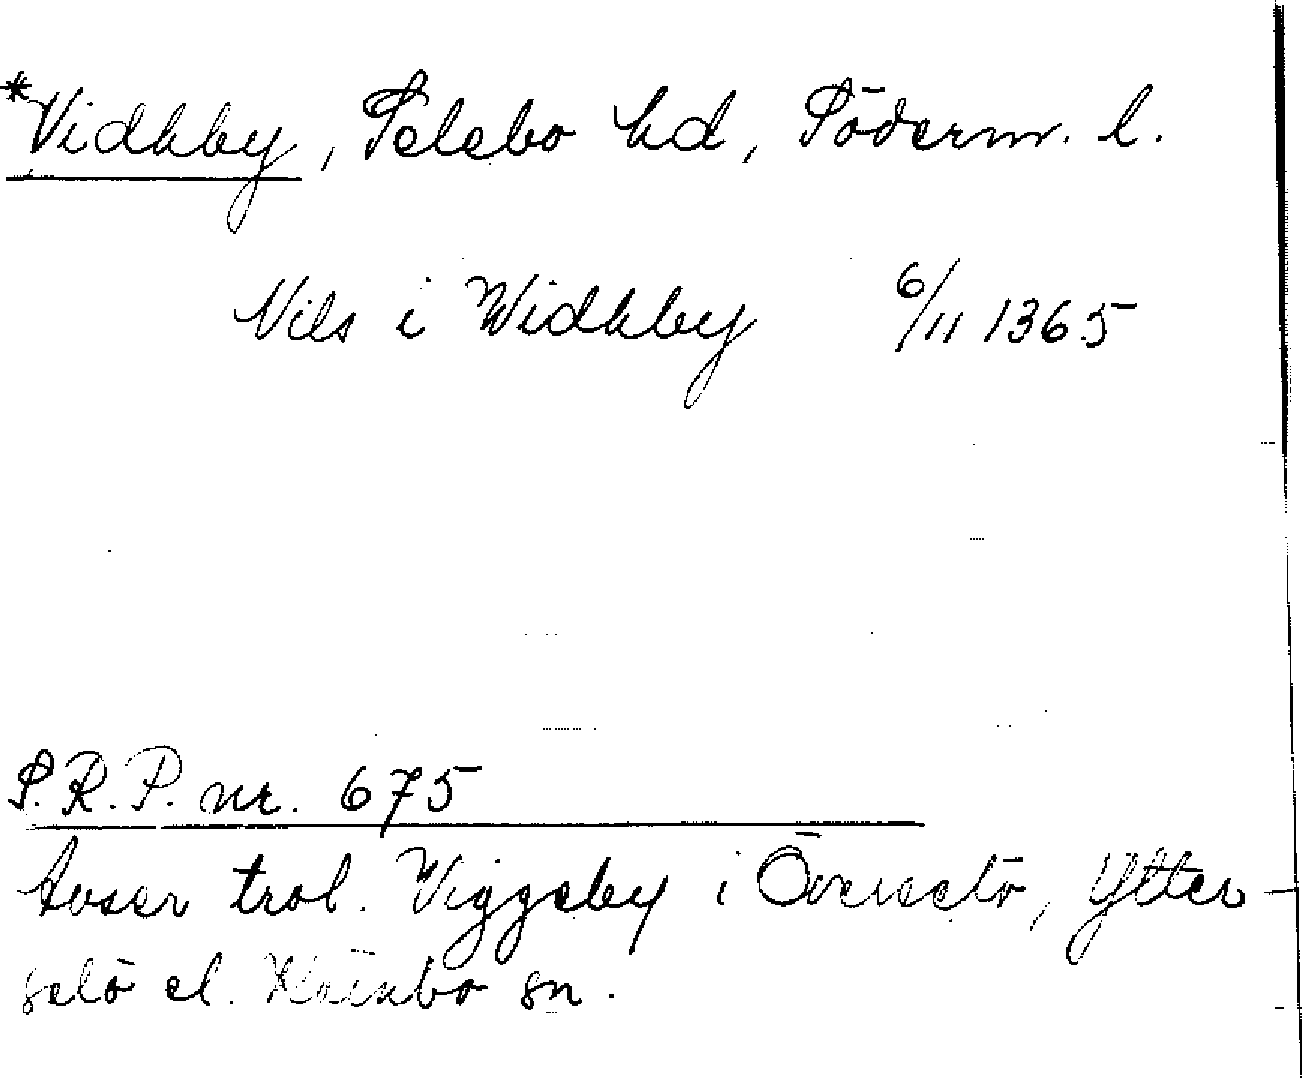 *Vidkby, Selebo hd, Söderm. l.
Nils i Widkby 6/11 1365
S.R.P. nr. 675
Avser trol. Viggeby i Överselö, Ytter-
selö el. Kärnbo sn.